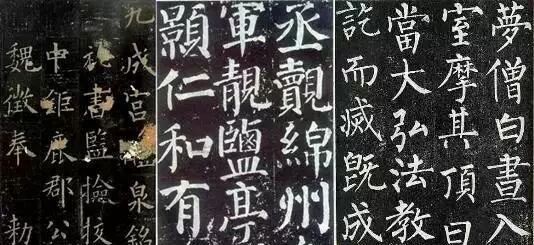 九成宮泉銘
祕書監撿校
中鉅鹿郡公
魏徵奉 勅
丞覿綿州
軍靚鹽亭
顥仁和有
夢僧白晝入
室摩其頂曰
當大弘法教
訖而滅既成